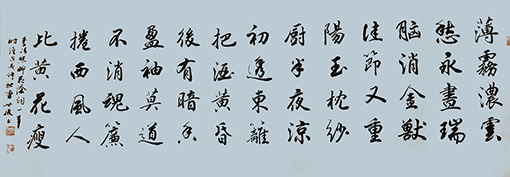 薄霧濃雲
愁永晝瑞
脑消金獸
佳節又重
陽玉枕紗
廚半夜涼
初透東籬
把酒黄昏
後有暗香
盈袖莫道
不消魂簾
捲西風人
比黄花瘦
李清照醉花陰詞一首